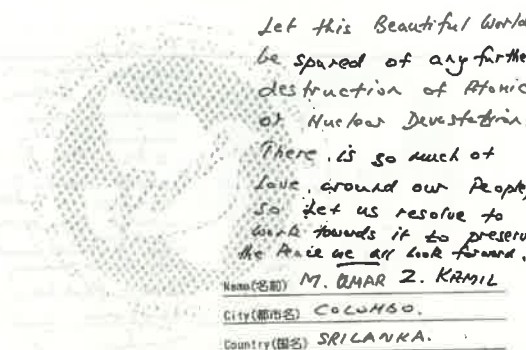 Let this Beautiful World
be spared of any further
destruction of Atomic
or Nuclear Devastation.
There is so much of
Love around our People,
So let us resolve to
work towards it to preserve
the Peace we all look forward.
Name(名前) M. QMAR Z. KAMIL
City(都市名) COLOMBO.
Country(国名) SRILANKA.